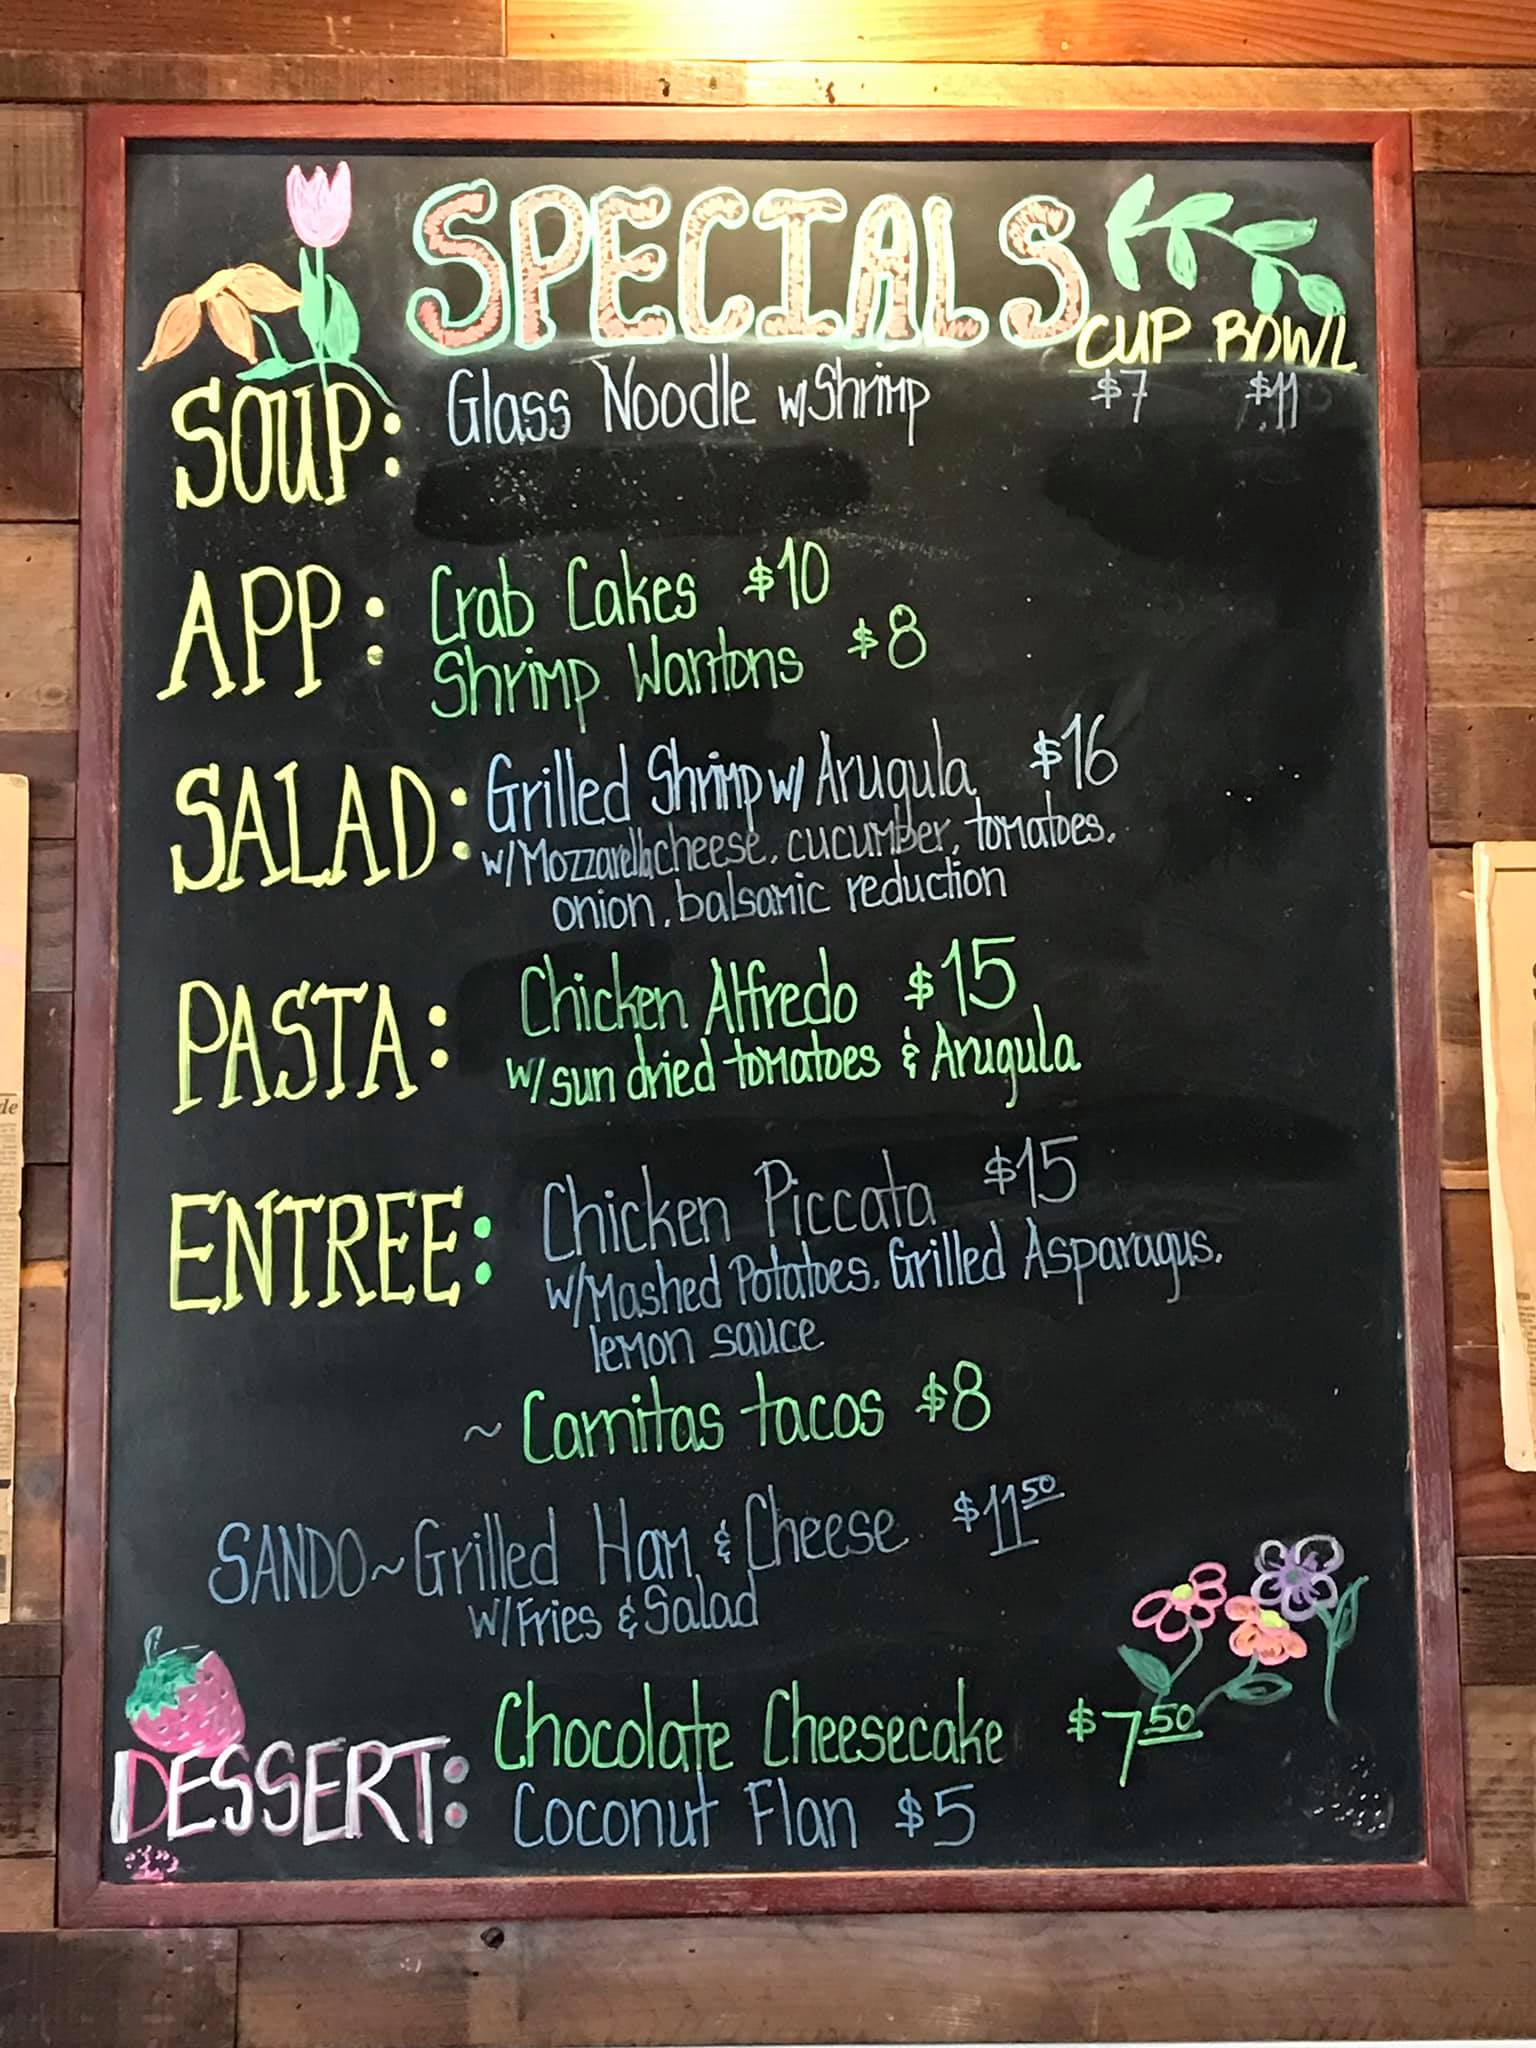 SPECIALS
CUP BOWL
SOUP: Glass Noodle w/Shrimp $7 $11
APP: Crab Cakes $10
Shrimp Wantons $8
SALAD: Grilled Shrimp w/ Arugula $16
w/Mozzarella cheese, cucumber, tomatoes,
onion, balsamic reduction
PASTA: Chicken Alfredo $15
w/ sun dried tomatoes & Arugula
ENTREE: Chicken Piccata $15
w/Mashed Potatoes, Grilled Asparagus,
lemon sauce
~ Carnitas tacos $8
SANDO~Grilled Ham & Cheese $11.50
w/Fries & Salad
DESSERT: Chocolate Cheesecake $7.50
Coconut Flan $5